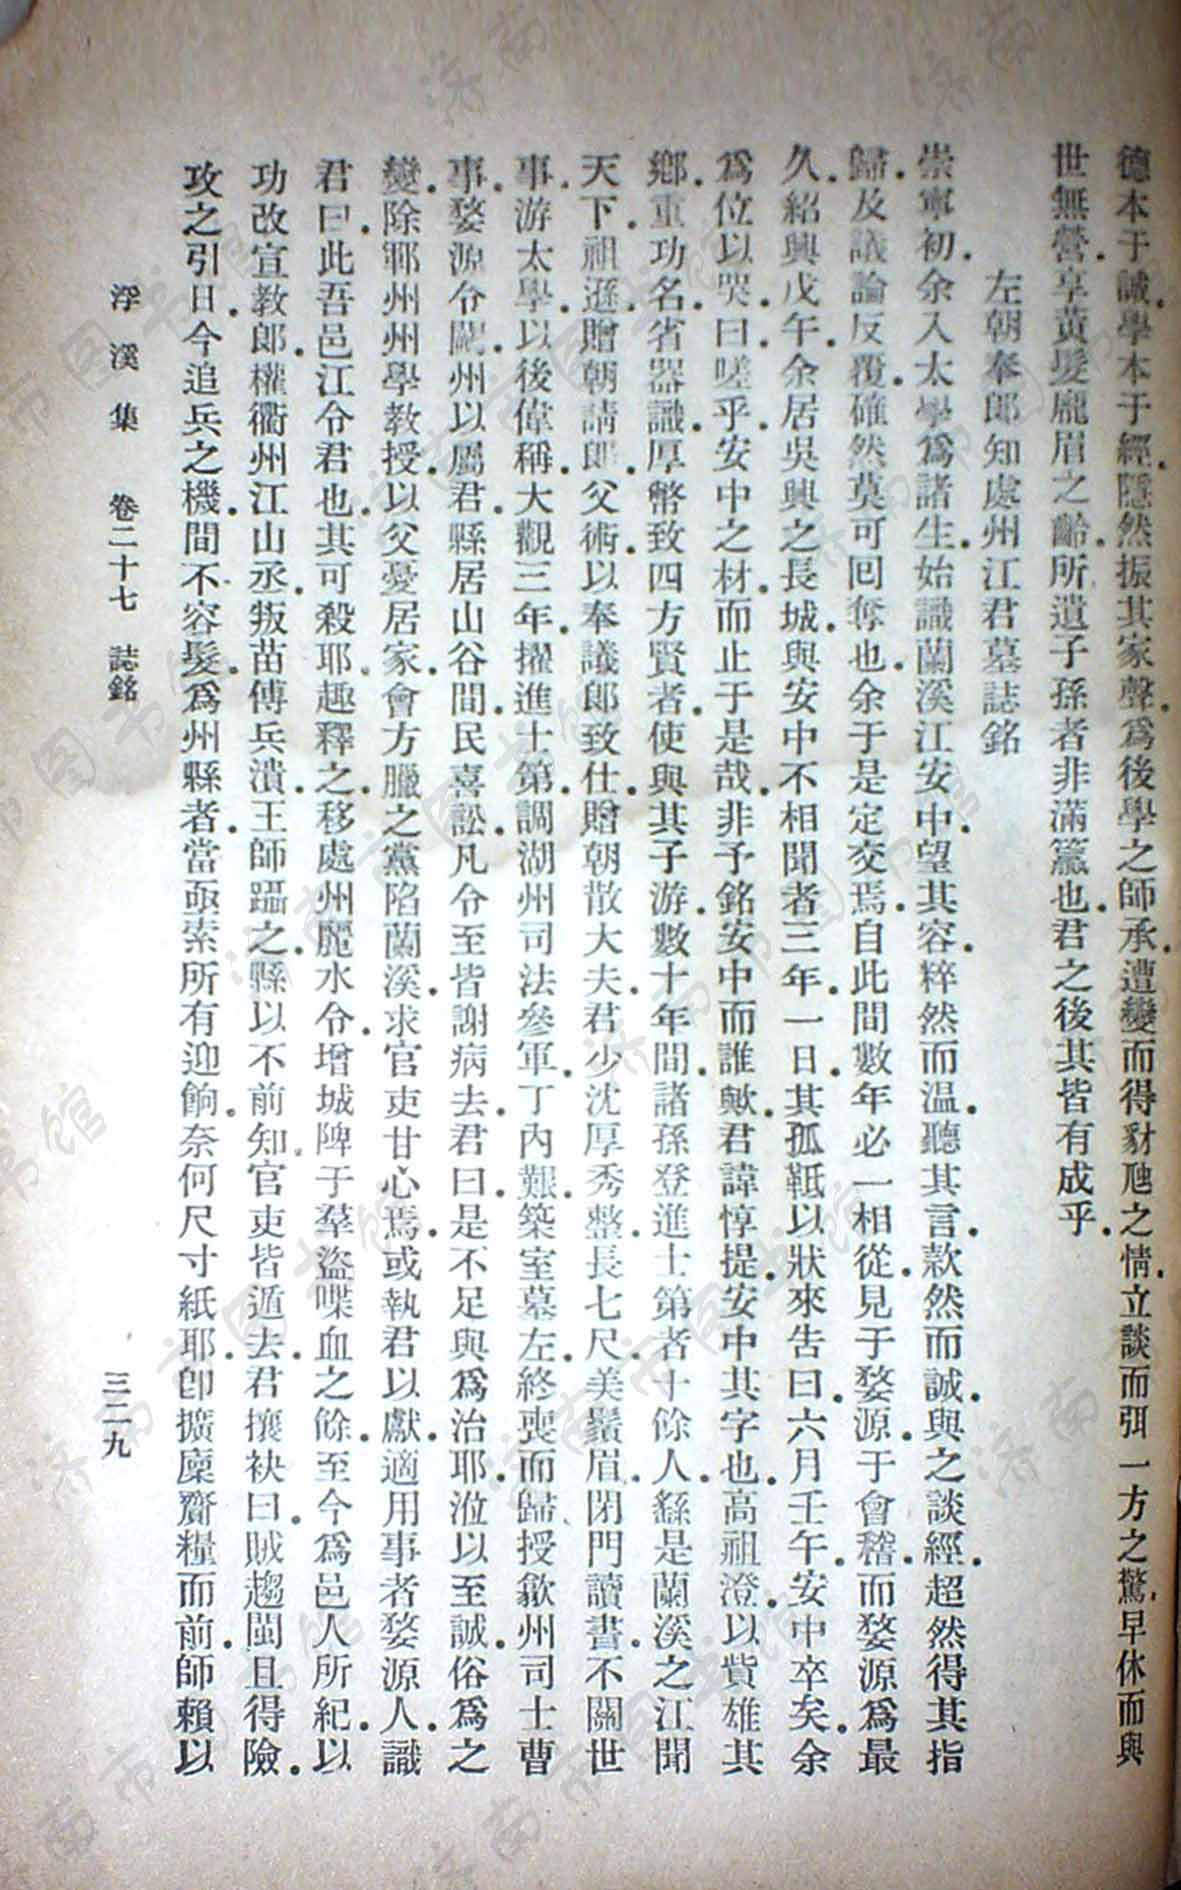 德本于誠。學本于經。隱然振其家聲。爲後學之師承。遭變而得豺虺之情。立談而弭一方之驚。早休而與
世無營。享黃髮龐眉之齡。所遺子孫者非滿籯也。君之後其皆有成乎。
左朝奉郎知處州江君墓誌銘
崇寧初。余入太學爲諸生。始識蘭溪江安中。望其容。粹然而溫。聽其言。款然而誠。與之談經。超然得其指
歸。及議論反覆。確然莫可回奪也。余于是定交焉。自此間數年必一相從。見于婺源。于會稽。而婺源爲最
久。紹興戊午。余居吳興之長城。與安中不相聞者三年。一日。其孤䡄以狀來告曰。六月壬午。安中卒矣。余
爲位以哭。曰。嗟乎。安中之材。而止于是哉。非予銘安中而誰歟。君諱惇提。安中其字也。高祖澄。以貲雄其
鄉。重功名。省器識。厚幣致四方賢者。使與其子游。數十年間。諸孫登進士第者十餘人。繇是蘭溪之江聞
天下。祖遜。贈朝請郎。父術。以奉議郎致仕。贈朝散大夫。君少沈厚秀整。長七尺。美鬚眉。閉門讀書。不關世
事。游太學。以後偉稱。大觀三年。擢進士第。調湖州司法參軍。丁內艱。築室墓左。終喪而歸。授歙州司士曹
事。婺源令闕。州以屬君。縣居山谷間。民喜訟。凡令至皆謝病去。君曰。是不足與爲治耶。涖以至誠。俗爲之
變。除鄆州州學教授。以父憂居家。會方臘之黨陷蘭溪。求官吏甘心焉。或執君以獻。適用事者婺源人。識
君。曰。此吾邑江令君也。其可殺耶。趣釋之。移處州麗水令。增城陴于羣盜喋血之餘。至今爲邑人所紀。以
功改宣教郎。權衢州江山丞。叛苗傅兵潰。王師躡之。縣以不前知。官吏皆遁去。君攘袂曰。賊趨閩且得險。
攻之引日。今追兵之機。間不容髮。爲州縣者。當亟索所有迎餉。奈何尺寸紙耶。卽擴廩齎糧而前。師賴以
浮溪集 卷二十七 誌銘 三二九